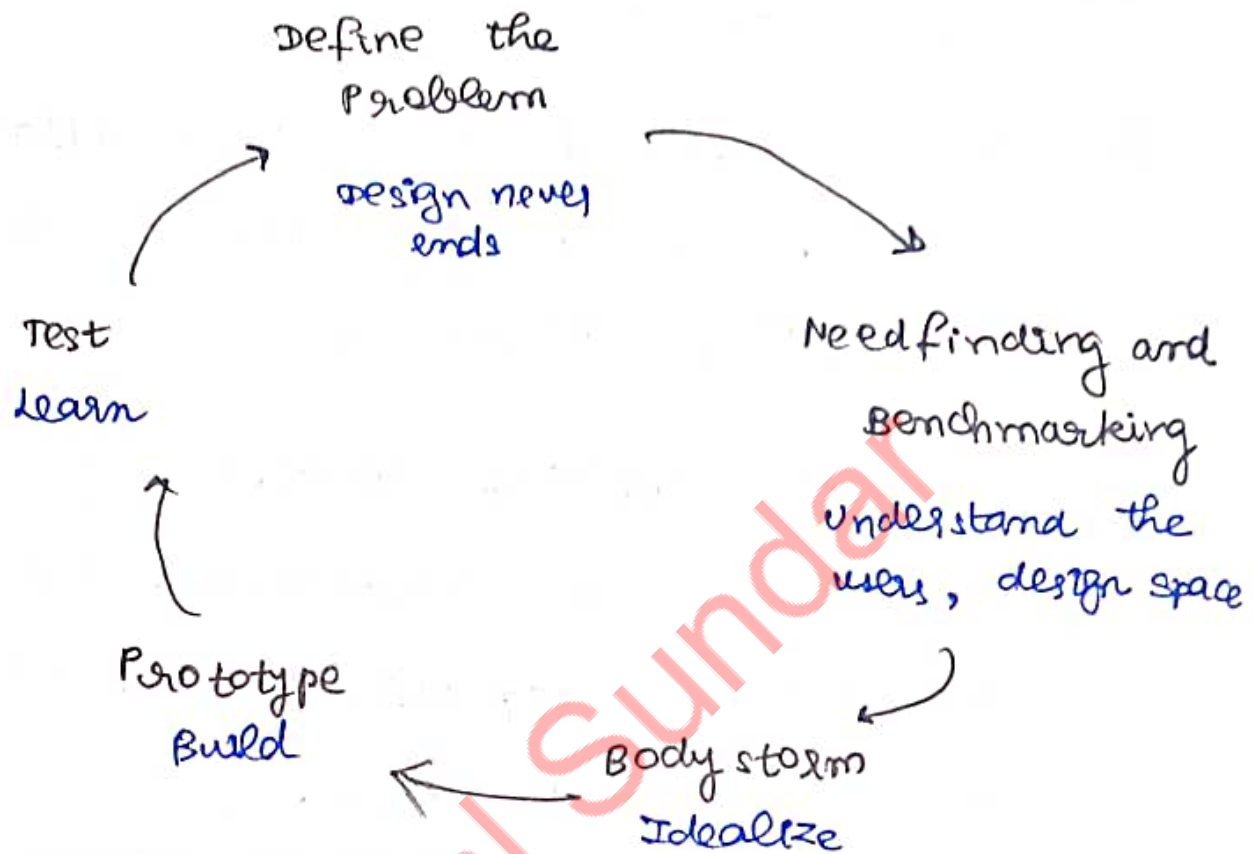 Define the
Problem
Design never
ends
Needfinding and
Benchmarking
Understand the
users, design space
Body storm
Idealize
Prototype
Build
Test
Learn
Sundar